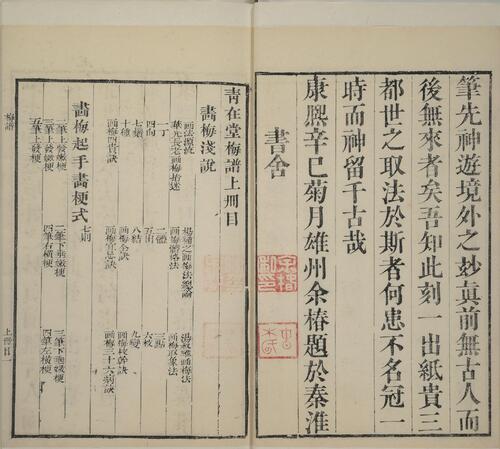 筆先神遊境外之妙真前無古人而
後無來者矣吾知此刻一出紙貴三
都世之取法於斯者何患不名冠一
時而神留千古哉
康熙辛巳菊月雄州余椿題於秦淮
書舍
青在堂梅譜上冊目
畫梅淺說
画法源流 楊補之画梅法總論 湯叔雅画梅法
華光長老画梅指迷 画梅體格法 画梅取象法
一丁 二體 三點
四向 五出 六枝
七鬚 八結 九變
十種 画梅全訣 画梅枝幹訣
画梅四貴訣 画梅宜忌訣 画梅三十六病訣
畫梅起手畫梗式 七則
二筆上發嫩梗 二筆下垂嫩梗 三筆下垂嫩梗
三筆上發嫩梗 四筆右橫梗 四筆左橫梗
五筆上發梗
梅譜
上冊目 一